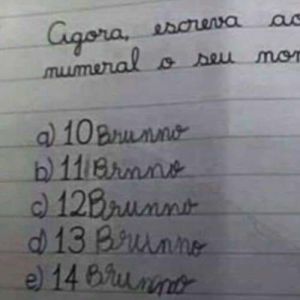 Agora, escreva ao
numeral o seu nom
a) 10 Brunno
b) 11 Brnno
c) 12 Brunno
d) 13 Brunno
e) 14 Brunno